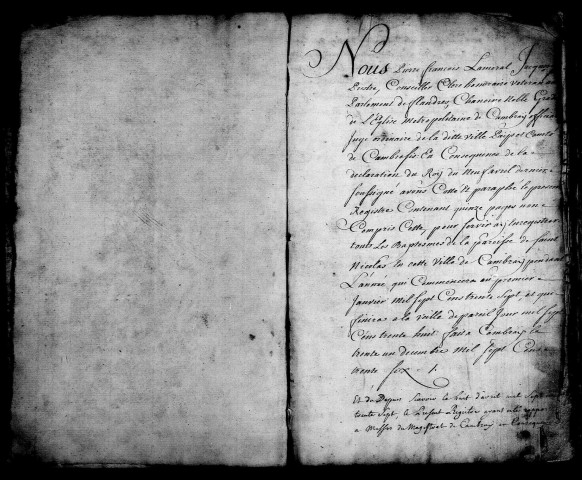 Nous Pierre francois Lamoral Jacques
Prestre, Conseiller Clercq honoraire veteran au
Parlement de flandres Chanoine Noble Gradué
de L'Eglise Metropolitaine de Cambray official
Juge ordinaire de la ditte ville Païs et Comté
de Cambresis En Consequence de la
declaration du Roy du Neuf avril dernier
soussigné avons Cotté et paraphé le present
Registre Contenant quinze pages non
Compris Cette, pour servir a y Enregistrer
tous Les Baptesmes de la paroisse de saint
Nicolas en cette Ville de Cambray pendant
L'année qui Commencera au premier
Janvier Mil sept Cens trente sept, et qui
finira a la veille de pareil Jour mil sept
Cens trente huit. fait a Cambray le
trente un decembre Mil sept Cens
trente six
Et du Depuis Scavoir le huit d'avril mil sept cent
trente sept, le present Registre ayant été
a Messrs du Magistrat de Cambray en Consequence